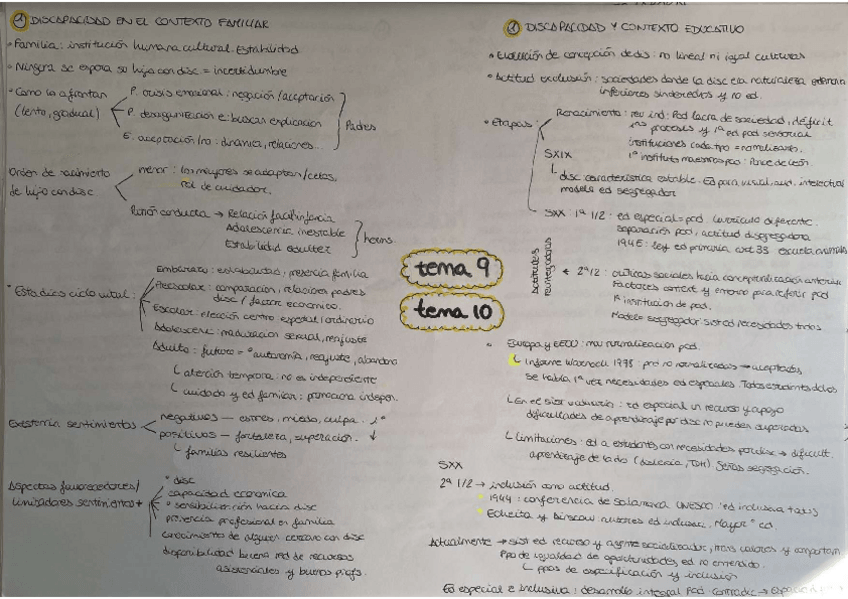 ① DISCAPACIDAD EN EL CONTEXTO FAMILIAR
• Familia: institución humana cultural. Estabilidad
• Ninguna se espera su hijo con disc = incertidumbre
• Como la afrontan (lento, gradual)
P. crisis emocional: negación/aceptación
P. desorganización e: buscan explicación
E. aceptación/no: dinámica, relaciones..
Padres
Orden de nacimiento de hijo con disc
menor: los mayores se adaptan/celos.
Rol de cuidador.
Patrón conducta → Relación fácil infancia
Adolescencia inestable
Estabilidad adultez
herms.
• Estadios ciclo vital:
Embarazo: estabilidad, presencia familia
Preescolar: comparación, relaciones padres
disc / factor económico.
Escolar: elección centro especial/ordinario
Adolescenc: maduración sexual, reajuste
Adulto: futuro = autonomía, reajuste, abandono
atención temprana: no es independiente
cuidado y ed familiar: promociona indepen.
Existencia sentimientos
negativos — estrés, miedo, culpa.
positivos — fortaleza, superación.
familias resilientes
Aspectos favorecedores/
limitadores sentimientos +
• disc
capacidad económica
• sensibilización hacia disc
presencia profesional en familia
conocimiento de alguien cercano con disc
disponibilidad buena red de recursos
asistenciales y buenos profs.
tema 9
tema 10
② DISCAPACIDAD Y CONTEXTO EDUCATIVO
• Evolución de concepción de dis: no lineal ni igual culturas
• Actitud exclusión: sociedades donde la disc era naturaleza
inferiores sin derechos y no ed.
• Etapas:
Renacimiento: rev ind: Pcd lacra de sociedad, déficit
procesos y 1ª ed pcd sensorial
instituciones cada tipo = normalizante.
SXIX
1º instituto maestros pcd: Ponce de León
disc: característica estable. Ed para visual, aud, intelectual
modelo ed segregador
SXX: 1ª 1/2: ed especial = pcd. Currículo diferente.
separación pcd, actitud disgregadora
1945: Ley ed primaria art 33 escuela anormales
Actitudes reintegradoras
2ª 1/2: críticas sociales hacia conceptualización anterior
Factores context y entorno para referir pcd
1ª institución de pcd.
Modelo segregador: sist ed necesidades todos
• Europa y EEUU: mov normalización pcd.
Informe Warnock 1978: pcd no normalizados → aceptados,
se habla 1ª vez necesidades ed especiales. Todos estudiantes de los
En el sist valorativo: ed especial un recurso y apoyo
dificultades de aprendizaje por disc no pueden superarlas
Limitaciones: ed a estudiantes con necesidades por disc → dificult.
aprendizaje de lado (dislexia, TDH) Señas segregación.
SXX
2ª 1/2 → inclusión como actitud.
1944: conferencia de Salamanca UNESCO: ed inclusiva todos
Echeita y Ainscow autores ed inclusiv.
Actualmente → sist ed recurso y agente socializador, trans valores y comportam
Ppo de igualdad de oportunidades, ed no entendido.
ppos de especificación y inclusión
Ed especial e Inclusiva: desarrollo integral Pcd. Contradic →